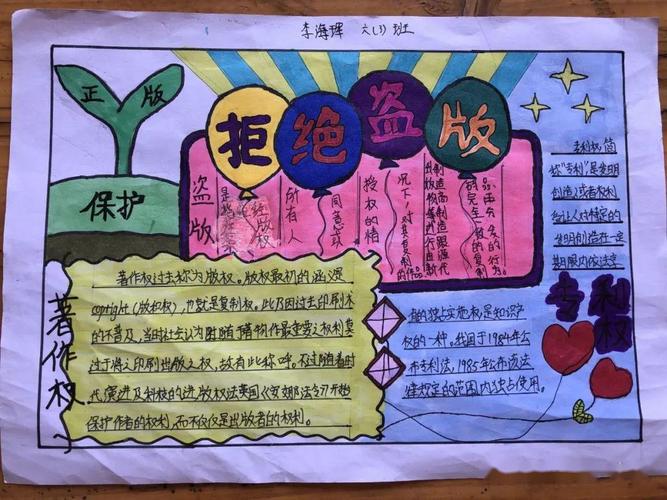 李海珲 六(3)班
正版
保护
拒绝盗版
盗版
是指在未
经版权
所有人
同意或
授权的情
况下,对其复制的
著作权
著作权过去称为版权。版权最初的涵义是
copyright(版和权),也就是复制权。此乃因过去印刷术
的不普及,当时社会认为附随于著物作最重要之权利莫
过于将之印刷出版之权,故有此称呼。不过随着时
代演进及科技的进,版权法英国《安娜法令》开始
保护作者的权利,而不仅仅是出版者的权利。
专利权,简
称“专利”是发明
创造人或者权利
受让人对特定的
发明创造在一定
期限内依法享
专利权
有的独占实施权,是知识产
权的一种。我国于1984年公
布专利法,1985年公布该法
范围内独占使用。